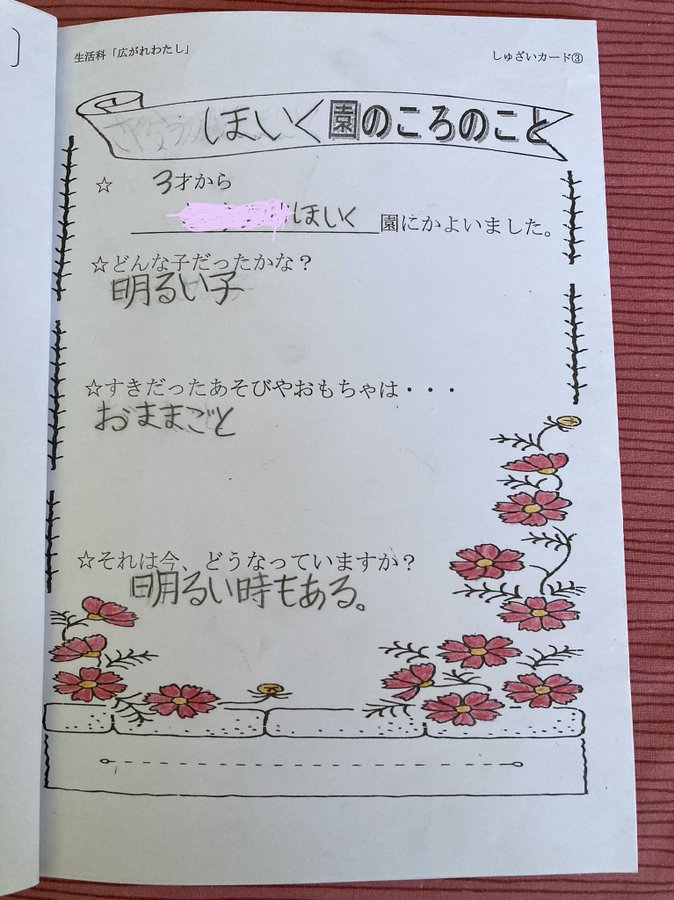 生活科「広がれわたし」
しゅざいカード③
ほいく園のころのこと
☆ 3才から
ほいく園にかよいました。
☆どんな子だったかな？
明るい子
☆すきだったあそびやおもちゃは・・・
おままごと
☆それは今、どうなっていますか？
明るい時もある。